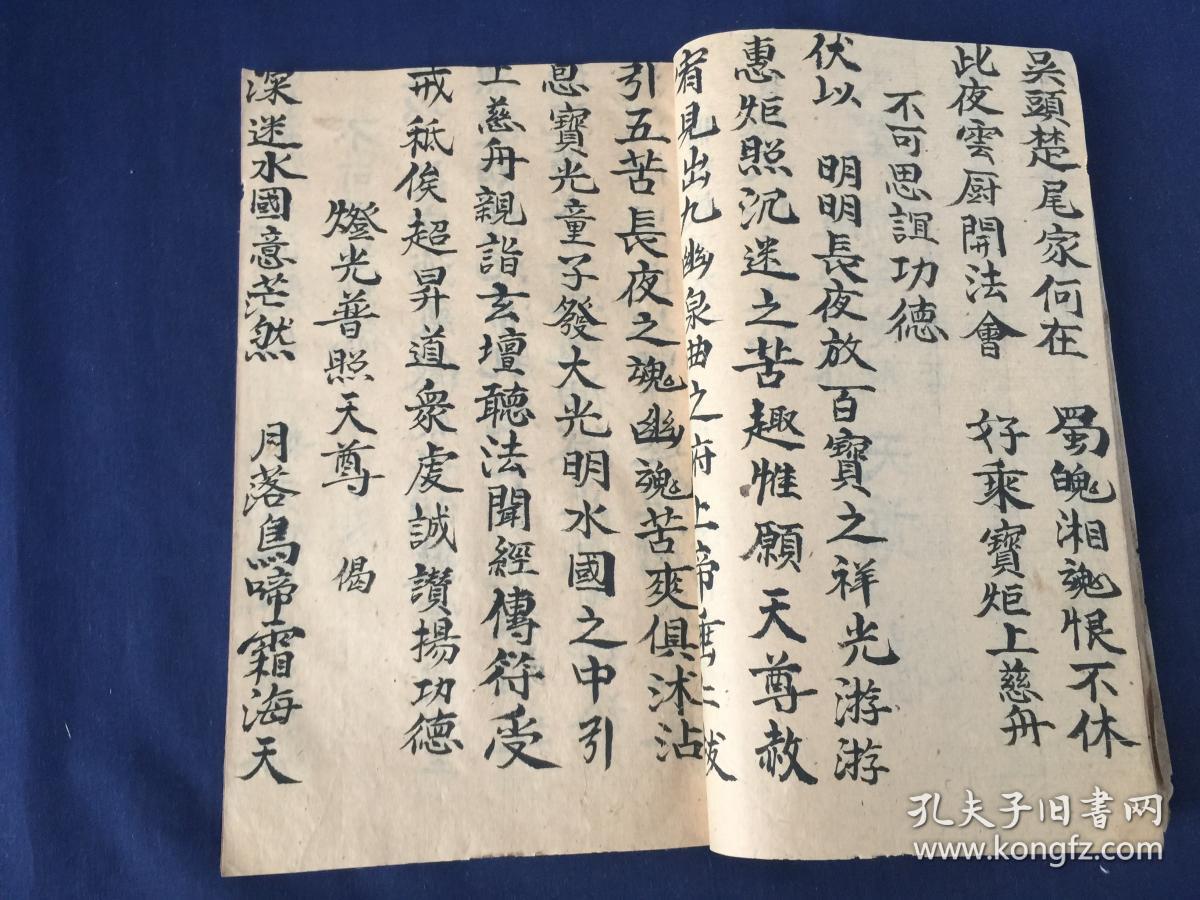 吳頭楚尾家何在 蜀魄湘魂恨不休
此夜雲厨開法會 好乘寶炬上慈舟
不可思誼功德
伏以 明明長夜放百寶之祥光游游
惠炬照沉迷之苦趣惟願天尊赦
宥見出九幽泉曲之府上帝垂
引五苦長夜之魂幽魂苦爽俱沭沾
息寶光童子發大光明水國之中引
上慈舟親詣玄壇聽法聞經傳符受
戒秖俟超昇道衆虔誠讃揚功德
燈光普照天尊 偈
深迷水國意茫然 月落鳥啼霜海天
孔夫子旧书网
www.kongfz.com